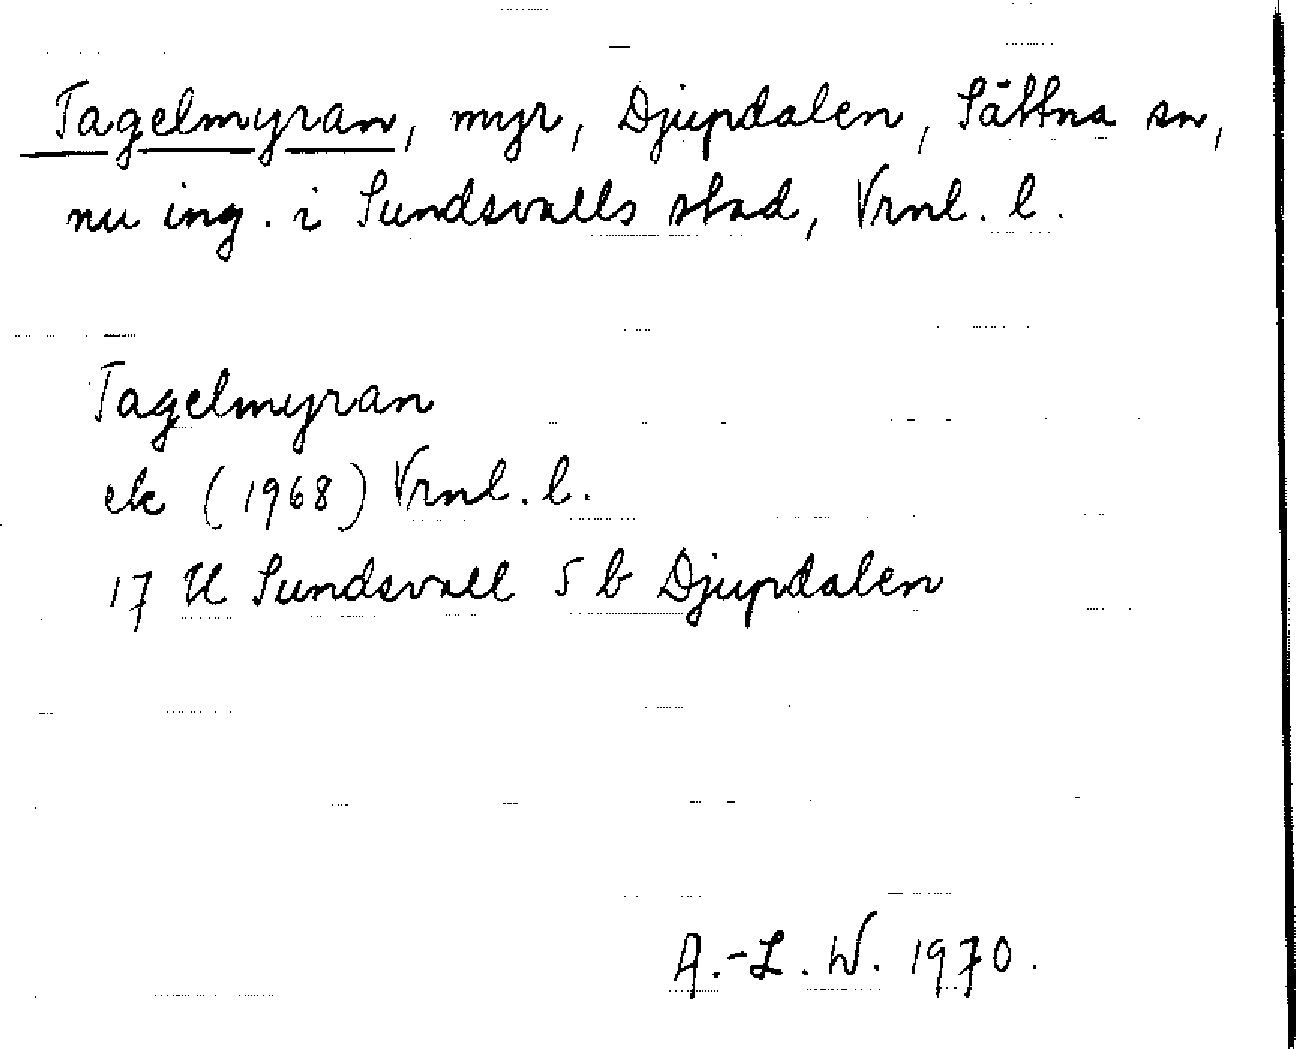 Tagelmyran, myr, Djupdalen, Sättna sn,
nu ing. i Sundsvalls stad, Vrnl. l.
Tagelmyran
ek (1968) Vrnl. l.
17 H Sundsvall 5 b Djupdalen
A.-L. W. 1970.